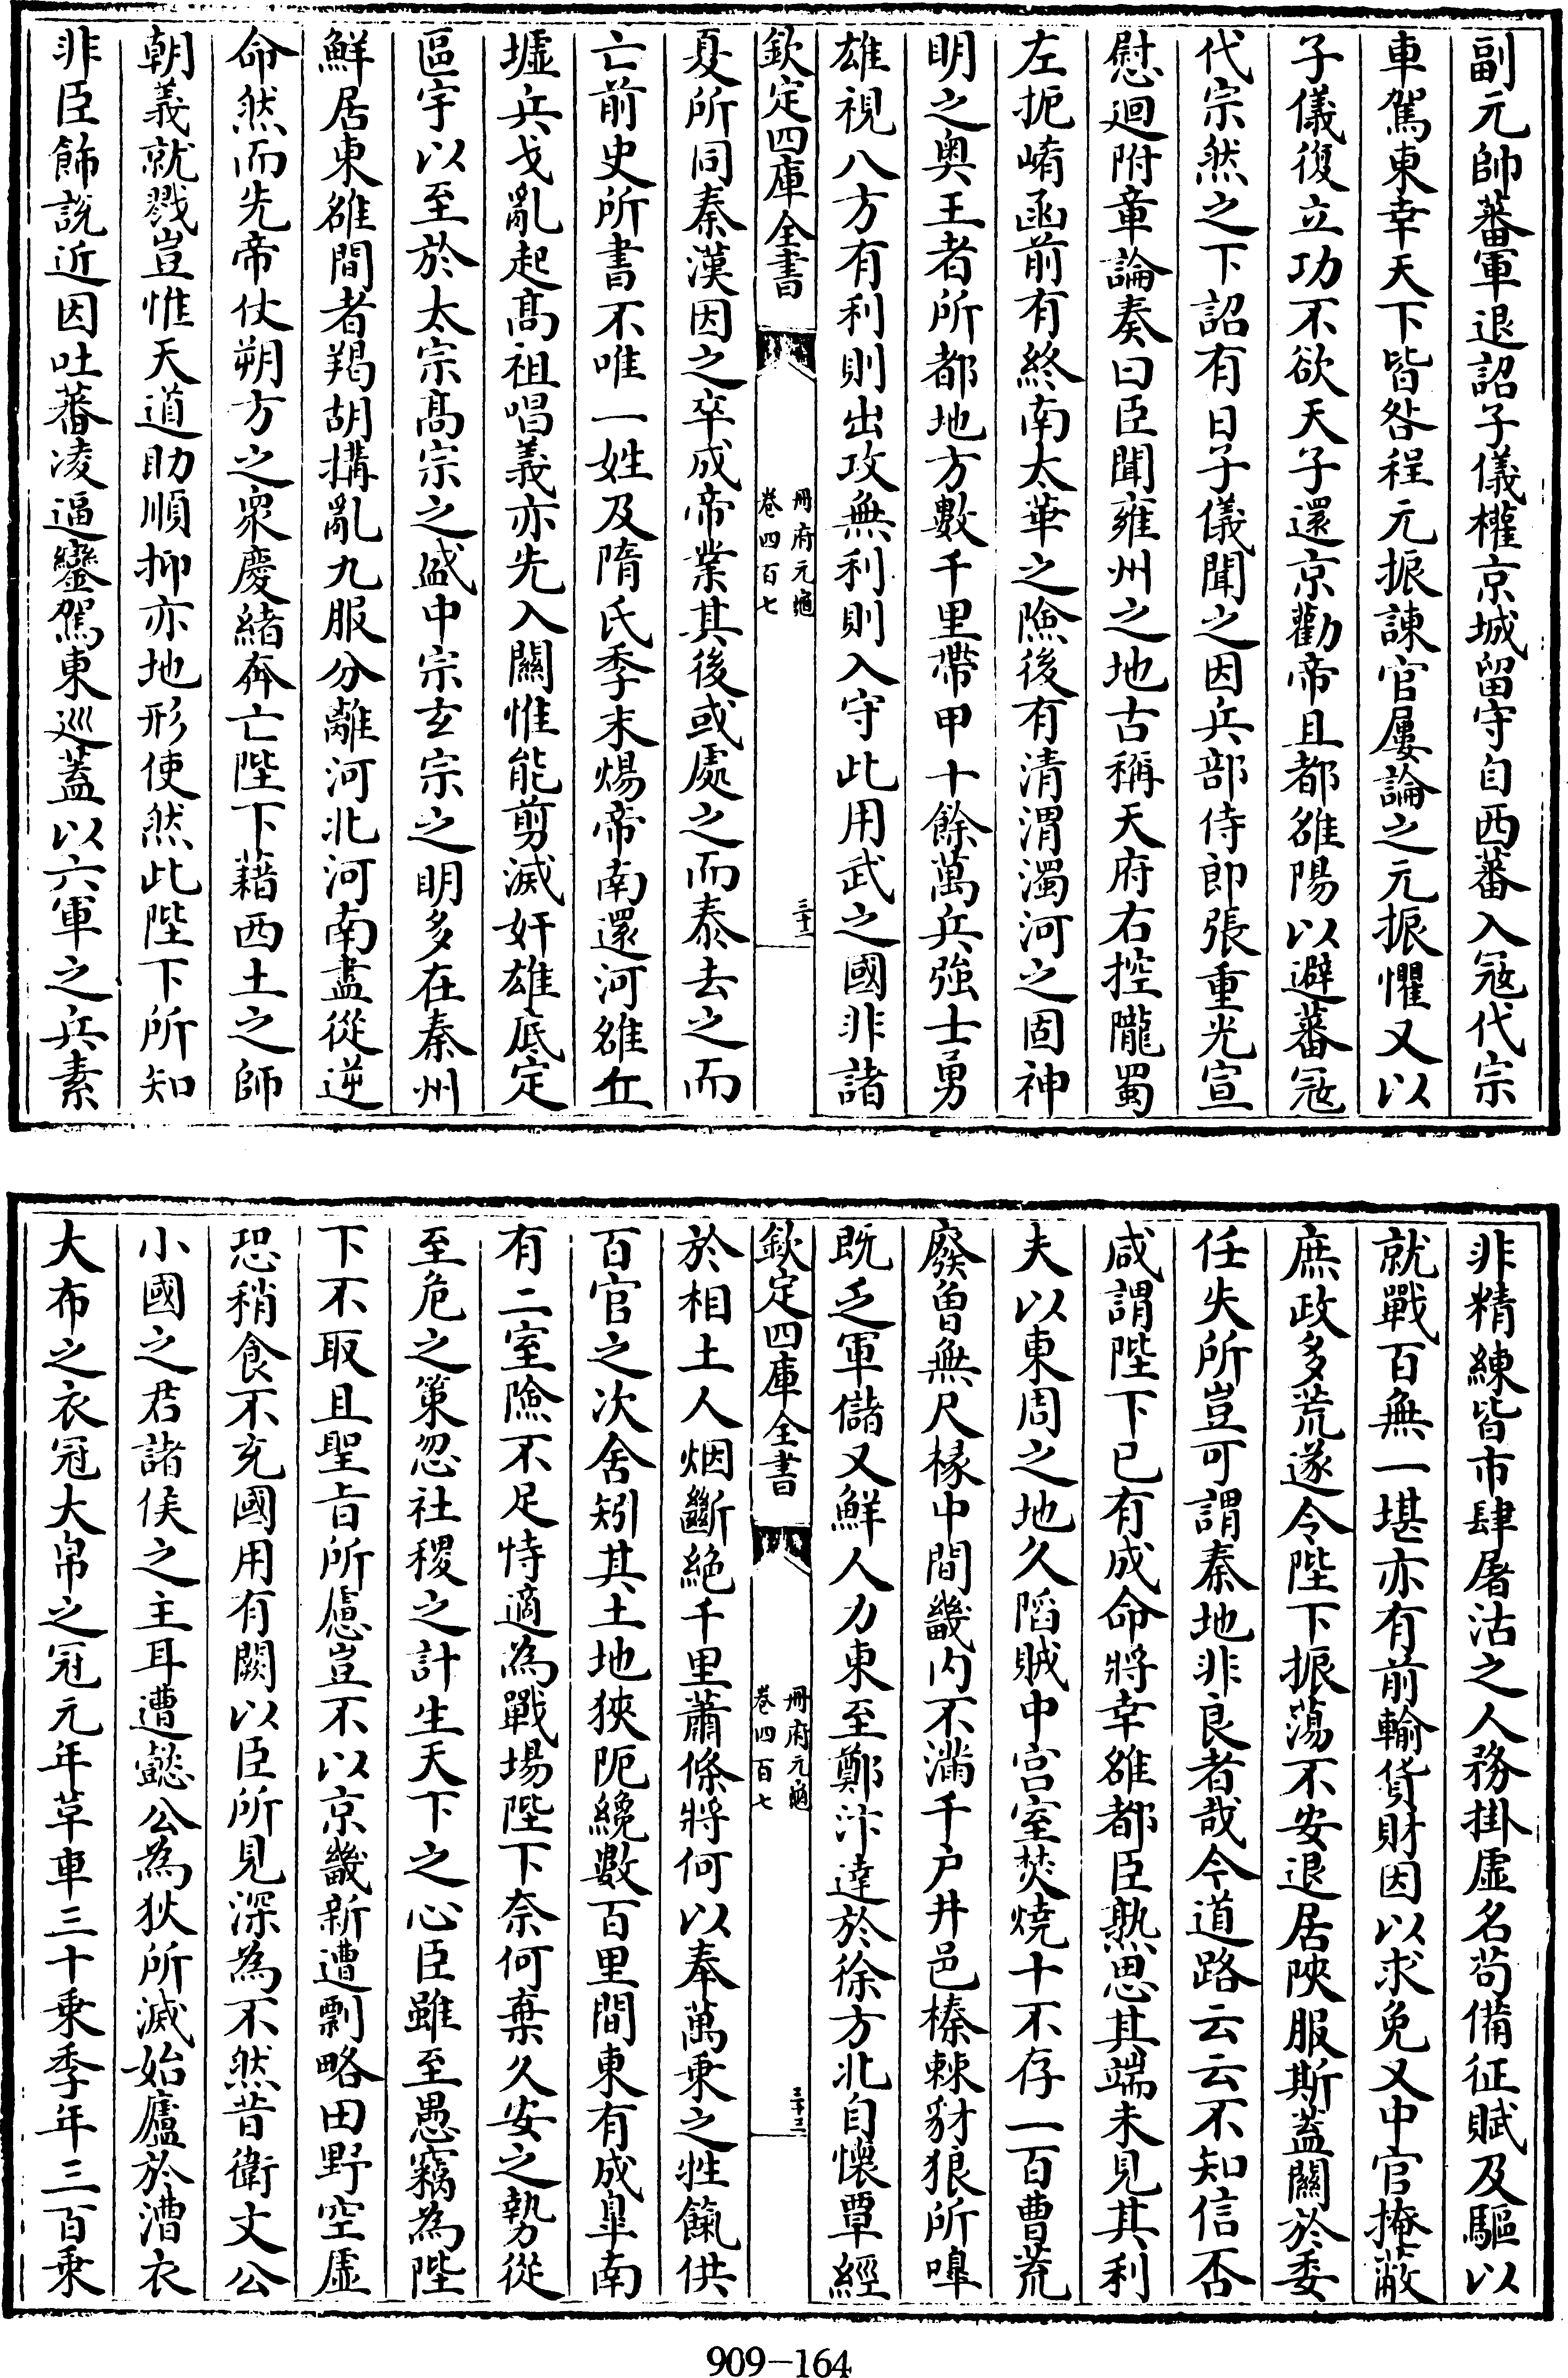 副元帥蕃軍退詔子儀權京城留守自西蕃入冦代宗
車駕東幸天下皆咎程元振諫官屢論之元振懼又以
子儀復立功不欲天子還京勸帝且都雒陽以避蕃冦
代宗然之下詔有日子儀聞之因兵部侍郎張重光宣
慰迴附章論奏曰臣聞雍州之地古稱天府右控隴蜀
左扼崤函前有終南太華之險後有清渭濁河之固神
明之奥王者所都地方數千里帶甲十餘萬兵強士勇
雄視八方有利則出攻無利則入守此用武之國非諸
欽定四庫全書
冊府元龜
卷四百七
三十二
夏所同秦漢因之卒成帝業其後或處之而泰去之而
亡前史所書不唯一姓及隋氏季末煬帝南還河雒丘
墟兵戈亂起高祖唱義亦先入關惟能剪滅奸雄底定
區宇以至於太宗高宗之盛中宗玄宗之明多在秦州
鮮居東雒間者羯胡搆亂九服分離河北河南盡從逆
命然而先帝仗朔方之衆慶緒奔亡陛下藉西土之師
朝義就戮豈惟天道助順抑亦地形使然此陛下所知
非臣飾說近因吐蕃凌逼鑾駕東巡蓋以六軍之兵素
非精練皆市肆屠沽之人務掛虛名苟備征賦及驅以
就戰百無一堪亦有前輸貨財因以求免又中官掩蔽
庶政多荒遂令陛下振蕩不安退居陜服斯蓋關於委
任失所豈可謂秦地非良者哉今道路云云不知信否
咸謂陛下已有成命將幸雒都臣熟思其端未見其利
夫以東周之地久陷賊中宫室焚燒十不存一百曹荒
廢曾無尺椽中間畿内不滿千户井邑榛棘豺狼所嘷
既乏軍儲又鮮人力東至鄭汴達於徐方北自懷覃經
欽定四庫全書
冊府元龜
卷四百七
三十三
於相土人烟斷絶千里蕭條將何以奉萬乗之牲餼供
百官之次舍矧其土地狹阨纔數百里間東有成臯南
有二室險不足恃適為戰場陛下奈何棄久安之勢從
至危之策忽社稷之計生天下之心臣雖至愚竊為陛
下不取且聖旨所慮豈不以京畿新遭剽略田野空虛
恐稍食不充國用有闕以臣所見深為不然昔衛文公
小國之君諸侯之主耳遭懿公為狄所滅始廬於漕衣
大布之衣冠大帛之冠元年草車三十乗季年三百乗
909-164